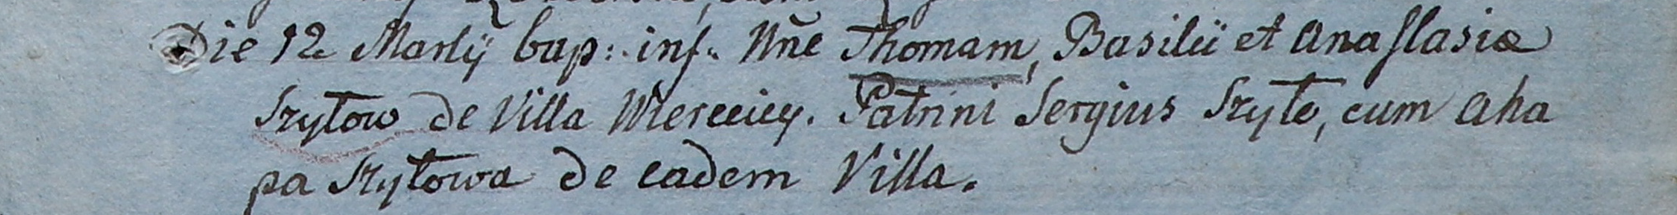 Die 12 Martij bap: inf: Nñe Thomam, Basilii et Anastasiæ
Szyłow de Villa Wierceicy. Patrini Sergius Szyło, cum Aha
pa Szyłowa de eadem Villa.